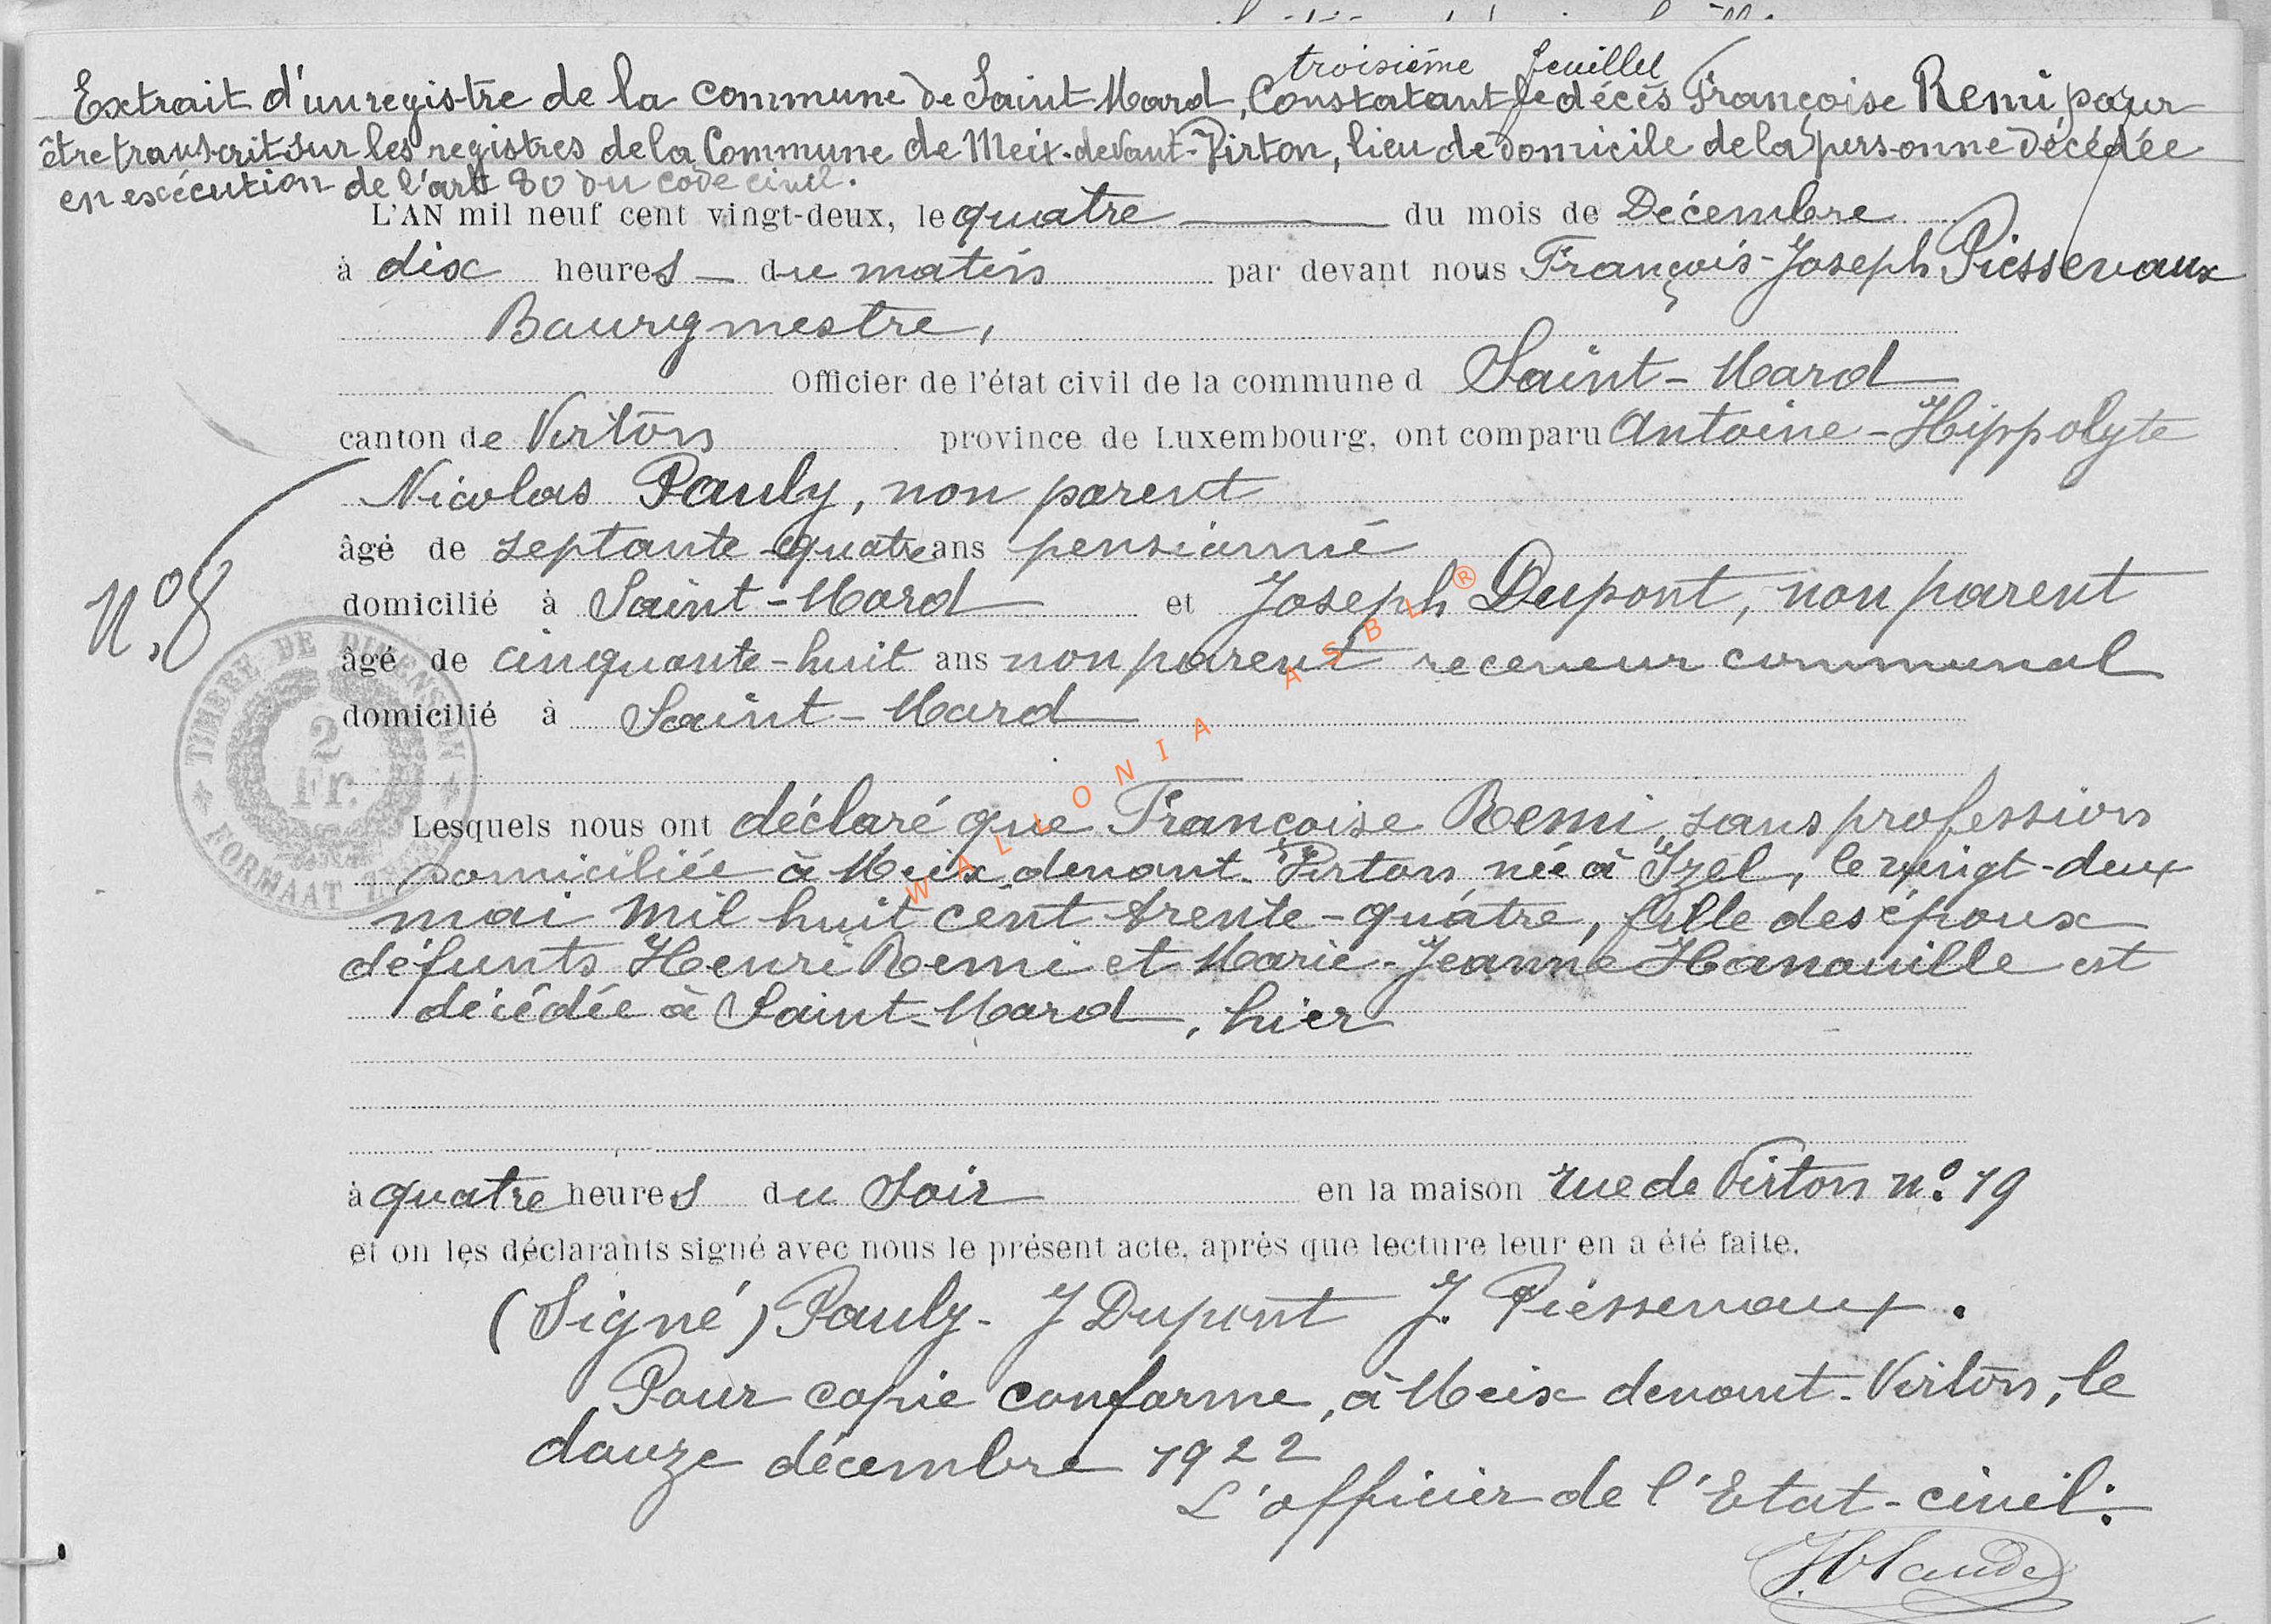 troisième feuillet
Extrait d'un registre de la commune de Saint Mard, Constatant le décès Françoise Remi, pour
être transcrit sur les registres de la Commune de Meix-devant-Virton, lieu de domicile de la personne décédée
en exécution de l'art 80 du code civil.
L'AN mil neuf cent vingt-deux, le quatre du mois de Decémbre
à dix heures du matin par devant nous François-Joseph Piessevaux
Bourgmestre,
Officier de l'état civil de la commune d Saint-Mard
canton de Virton province de Luxembourg, ont comparu Antoine-Hippolyte
Nicolas Pauly, non parent
âgé de septante-quatre ans pensionné
N° 8
domicilié à Saint-Mard et Joseph Dupont, non parent
âgé de cinquante-huit ans non parent receveur communal
domicilié à Saint-Mard
TIMBRE DE DIMENSION
2
Fr.
FORMAAT
WALLONIA ASBL ®
Lesquels nous ont déclaré que Françoise Remi, sans profession
domiciliée à Meix-devant-Virton née à Izel, le vingt-deux
mai mil huit cent trente-quatre, fille des époux
défunts Henri Remi et Marie-Jeanne Hanouille est
décédée à Saint-Mard, hier
à quatre heures du soir en la maison rue de Virton n° 19
et on les déclarants signé avec nous le présent acte, après que lecture leur en a été faite.
(Signé) Pauly - J Dupont J. Piéssevaux.
Pour copie conforme, à Meix devant-Virton, le
douze décembre 1922
L'officier de l'Etat-civil: